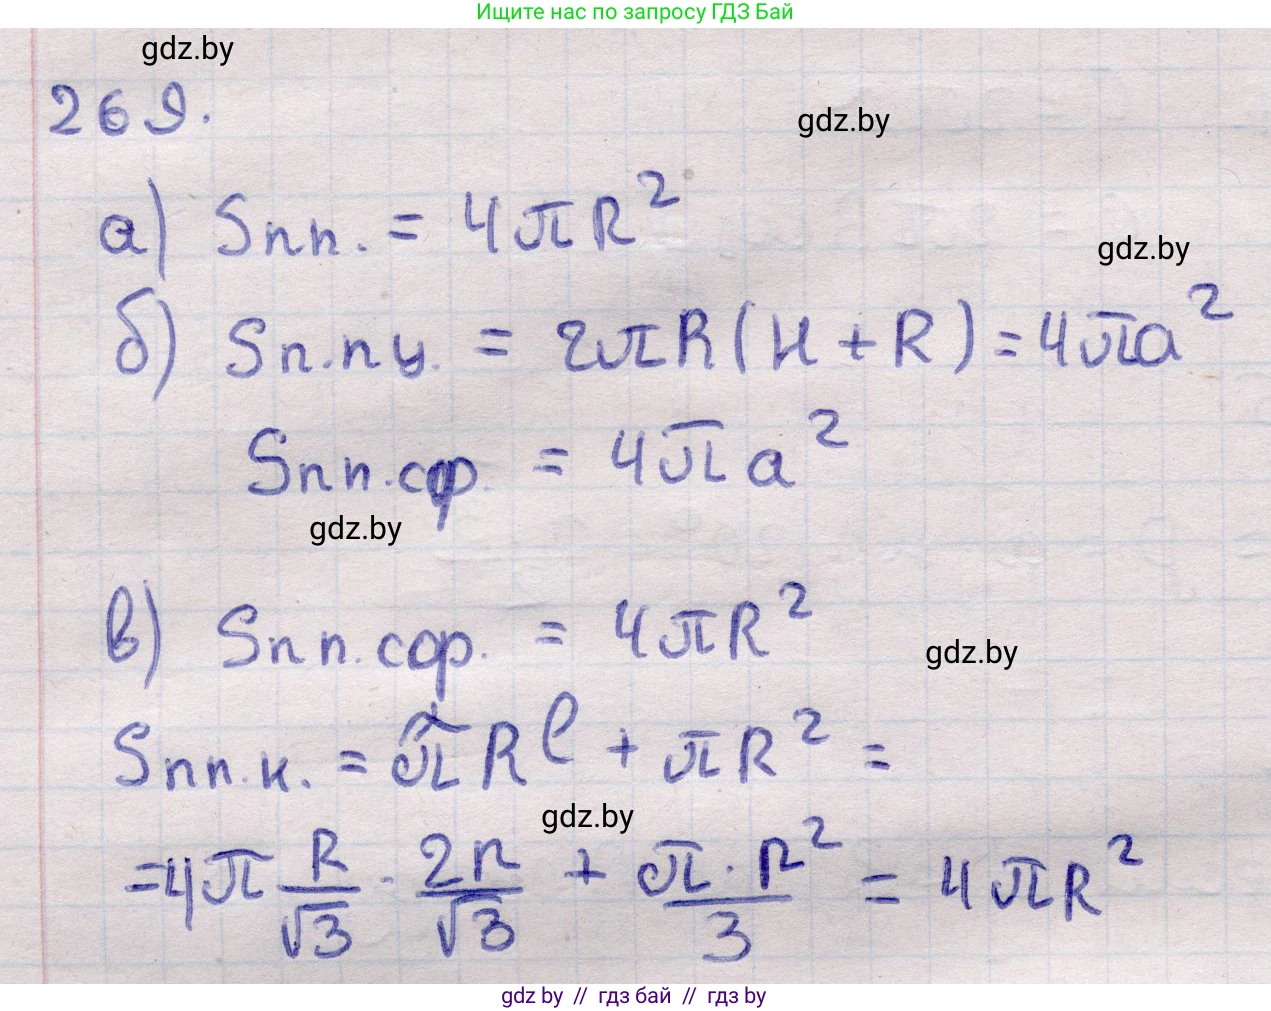 Ищите нас по запросу ГДЗ Бай
gdz.by
269.
gdz.by
а) Sпп. = 4πR²
gdz.by
б) Sп.пц. = 2πR(H + R) = 4πa²
Sпп.сф. = 4πa²
gdz.by
в) Sпп.сф. = 4πR²
gdz.by
Sпп.к. = πRl + πR² =
gdz.by
= 4π R/√3 · 2R/√3 + π·R²/3 = 4πR²
gdz by // гдз бай // гдз by